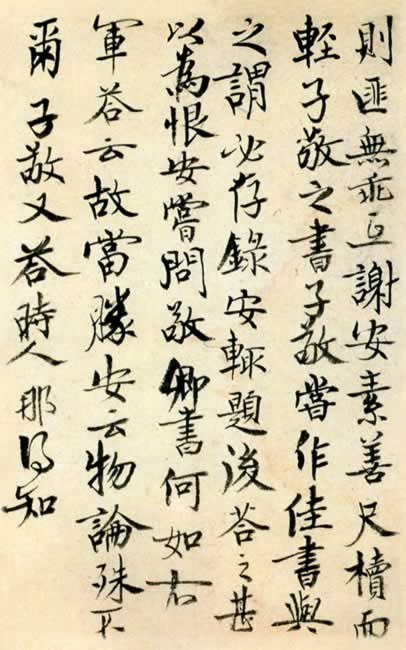 則匪無乖互謝安素善尺櫝而
輕子敬之書子敬嘗作佳書與
之謂必存錄安輒題後荅之甚
以爲恨安嘗問敬卿書何如右
軍荅云故當勝安云物論殊不
爾子敬又荅時人那得知